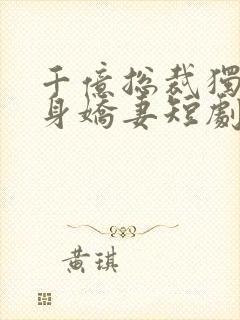 千億総裁獨
身嬌妻短劇
黃琪